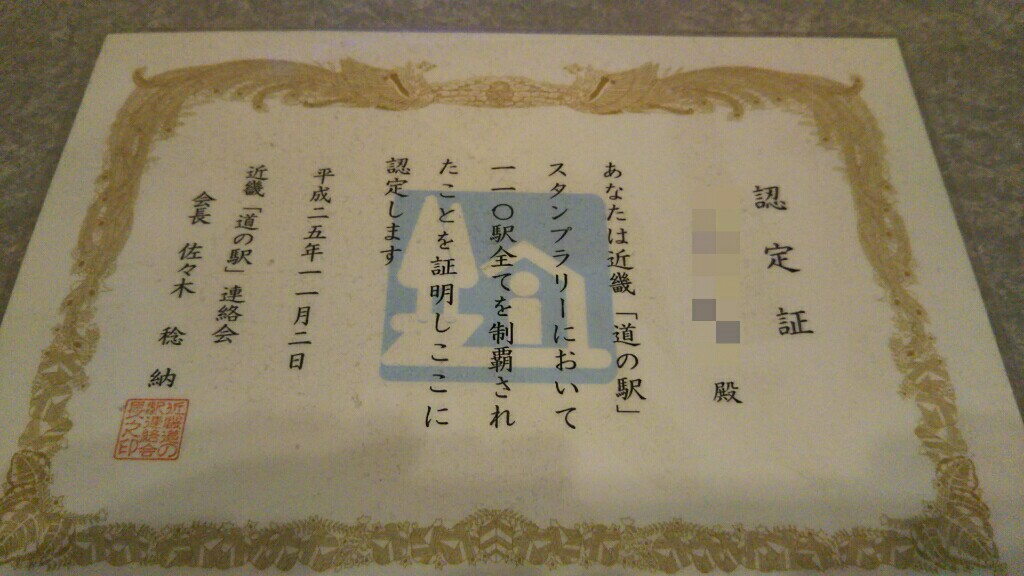 認定証
殿
あなたは近畿「道の駅」
スタンプラリーにおいて
一一〇駅全てを制覇され
たことを証明しここに
認定します
平成二五年一一月二日
近畿「道の駅」連絡会
会長 佐々木 稔納
近畿道の
駅連絡会
長之印